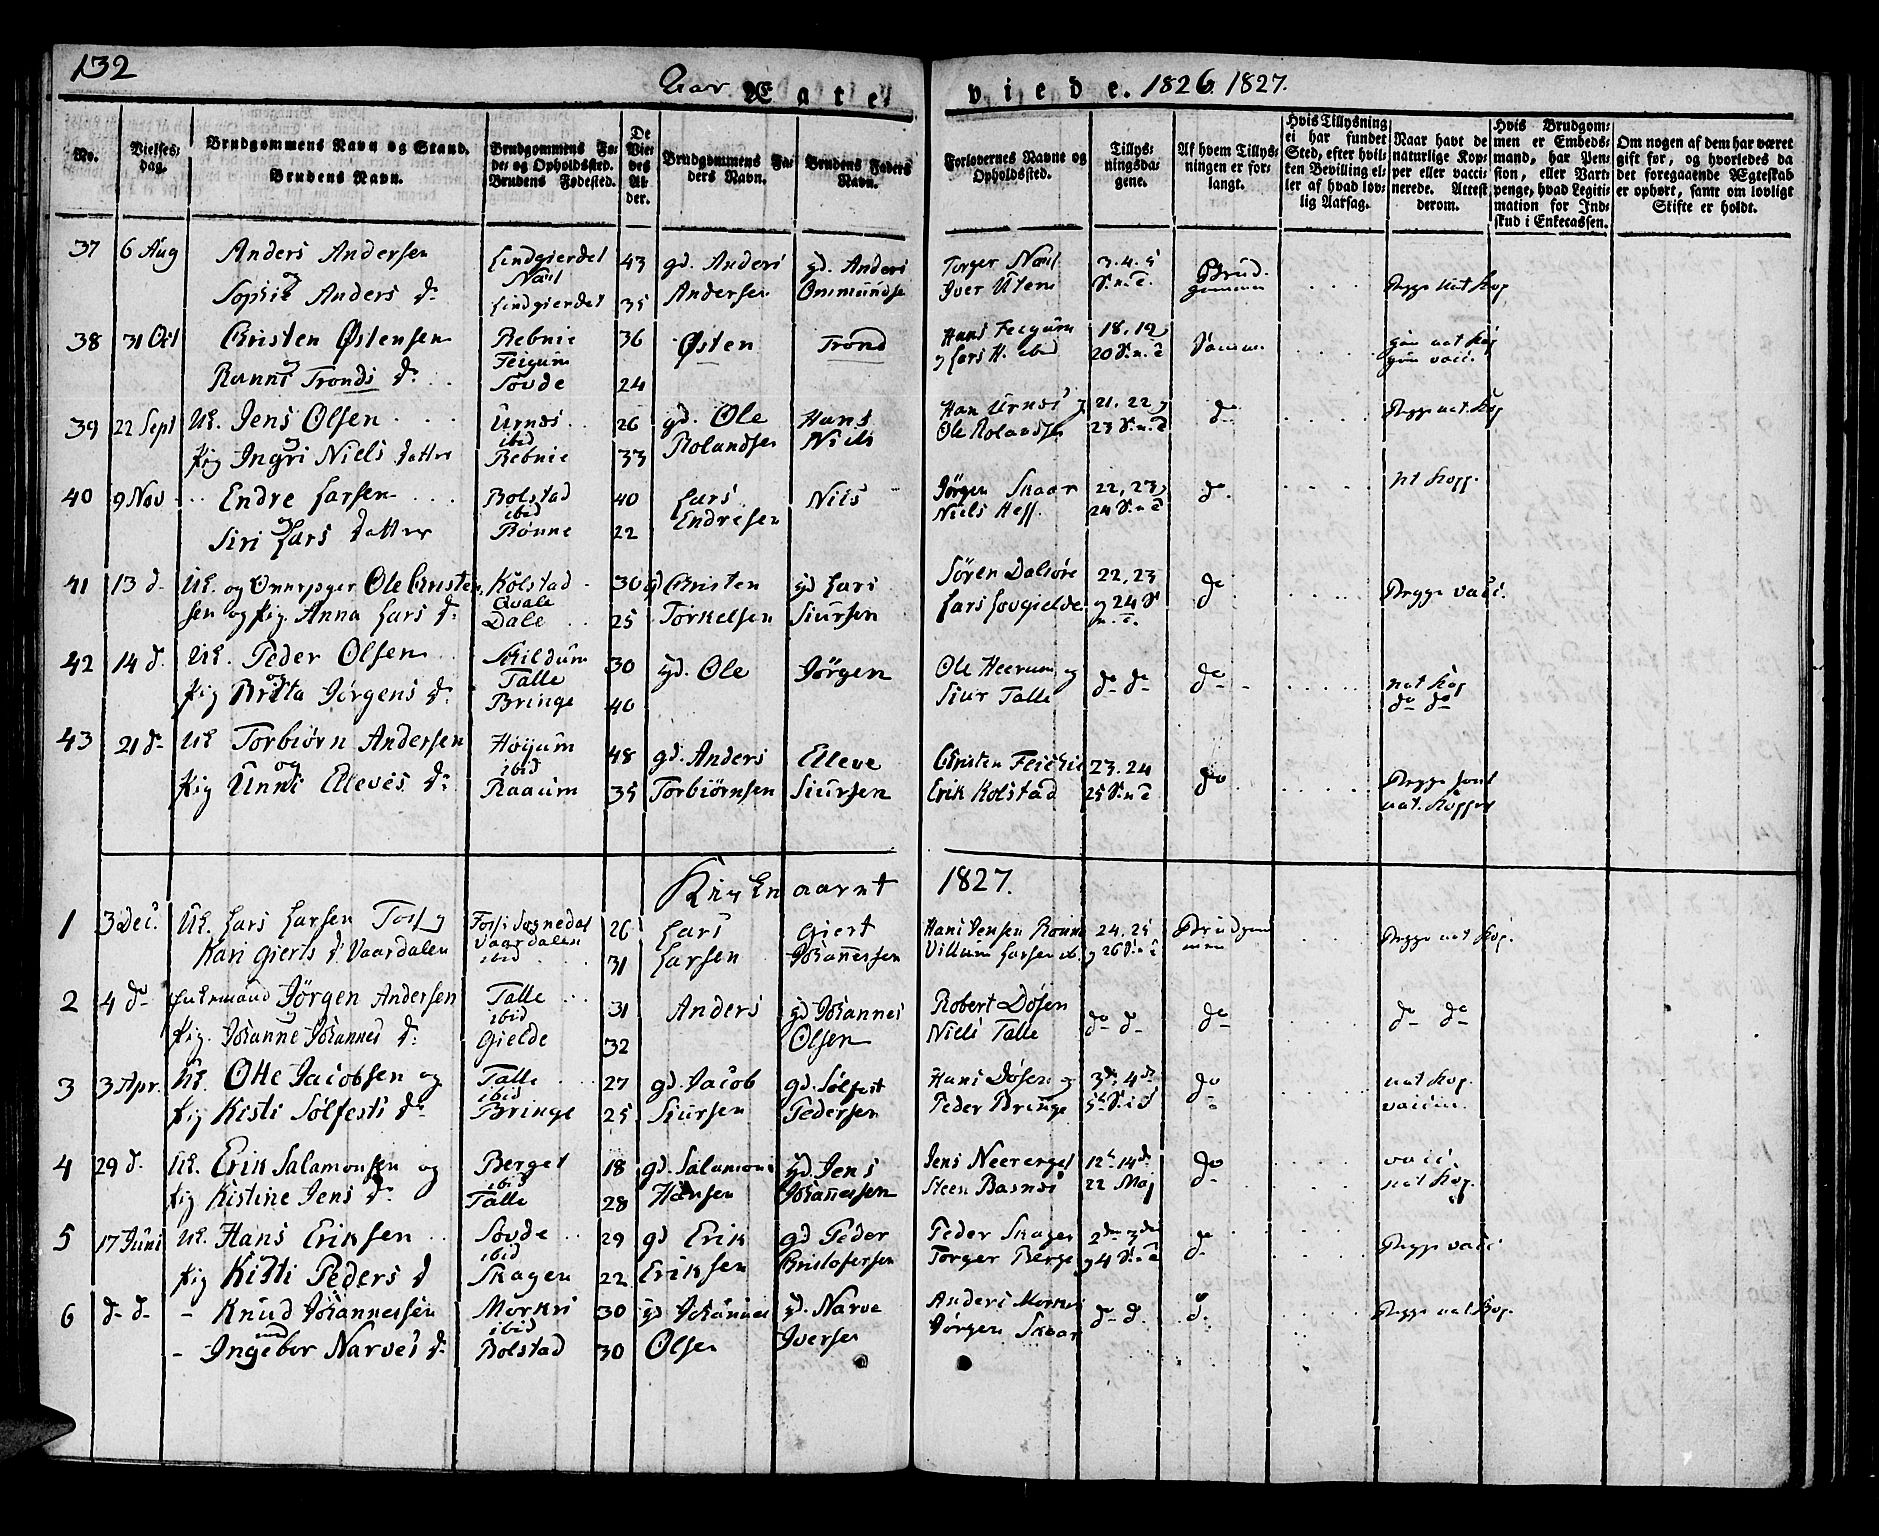 132
Aar Ægte viede. 1826. 1827.
No.
Vielses-dag.
Brudgommens Navn og Stand. Brudens Navn.
Brudgommens Fødes og Opholdssted. Brudens Fødested.
De Viedes Alder.
Brudgommens Faders Navn.
Brudens Faders Navn.
Forlovernes Navne og Opholdssted.
Tillysningsdagene.
Af hvem Tillysningen er forlangt.
Hvis Tillysning ei har fundet Sted, efter hvilken Bevilling eller af hvad lovlig Aarsag.
Naar havt de naturlige Kopper eller vaccinerede. Attest derom.
Hvis Brudgommen er Embedsmand, har Pension, eller Vartpenge, hvad Legitimation for Indskud i Enkecassen.
Om nogen af dem har været gift før, og hvorledes da det foregaaende Ægteskab er ophørt, samt om lovligt Skifte er holdt.
37 6 Aug Anders Andersen Lindgierdet 43 gd. Anders gd. Anders Torger 3. 4. 5 Brud-
og Næs
Sophie Anders d. Lindgierdet 35 Andersen Ommundse Iver Utem S. n. T. gommen Begge nat Kop
38 31 Oct Christen Østensen Rebnie 36 Østen Trond Hans Feigum 18. 19 Samme
og Feigum og Lars H. ibid 20 S. n. T
Ranni Tronds d. Sovde 24
39 22 Sept Uk. Jens Olsen Urnæs 26 gd. Ole Hans Han Urnæs g 21. 22 g do Begge nat. Kop
og ibid Rolandsen Niels Ole Rolandsen 23 S. n. T
Pig Ingri Niels datter Rebnie 33
40 9 Nov Endre Larsen Bolstad 40 Lars Nils Jørgen Skaar 22, 23 do nt Kopp.
og ibid Endresen Niels Hess. 24 S. n. T
Siri Lars datter Rønne 22
41 13 d. Uk. og Ole Christen Kolstad 30 gd Christen gd Lars Søren Dalsøre 22, 23 do Begge vacci.
Qvale
sen og Pig. Anna Lars d. Dale 25 Torkelsen Siursen Lars Lovgielde g 24 S n. T.
42 14 d. Uk. Peder Olsen Skildum 30 gd. Ole Jørgen Ole Heerum og do do do nat Kop
og Talle
Pig Britta Jørgens d. Bringe 40 Siur Talle do do
43 21 d. Uk Torbiørn Andersen Høyum 48 gd. Anders Elleve Christen 23. 24 do
og ibid
Pig Unni Elleves d. Raaum 35 Torbiørnsen Siursen Erik Kolstad 25 S. n. T Begge havt nat. Kopper
Kirkenaaret 1827.
1 3 Dec. Uk. Lars Larsen Foss og Foss i Sognedal 26 Lars Giert Hans Jensen Rønne 24. 25 Brudgom
Vaardalen
Kari Gierts d. Vaardalen ibid 31 Larsen Johannessen Villum Larsen ib. g 26 S. n. T men Begge nat Kop.
2 4 d. Enkemand Jørgen Andersen Talle 31 Anders gd Johannes Robert Døsen do do do do do
og ibid
Pig. Johanne Johannes d. Gielde 32 Olsen Niels Talle
3 3 Apr. Uk. Otte Jacobsen og Talle 27 gd. Jacob gd. Sølfest Hans Døsen og 3de 4de do nat Kop.
ibid
Pig Kisti Sølfests d. Bringe 25 Siursen Pedersen Peder Bringe vaccin.
4 29 d. Uk. Erik Salamonsen og Berget 18 gd. Salamons gd. Jens Jens Neereraet 12t 14d do vacci
ibid
Pig Kistine Jens d. Talle 28 Hansen Johannessen Steen Basnes 22 Maj nat Kop.
5 17 Juni Uk. Hans Eriksen Sovde 29 gd Erik gd Peder Peder Skagen 2den 3die do Begge vacci
ibid
Pig Kisti Peders d Skagen 22 Eriksen Christofersen Torger Berge g 4 S. n. T
6 d. d. - Knud Johannessen Morkri 30 gd Johannes gd. Narve Anders Morkri do d. d. Begge nat Kop.
med ibid
- Ingebor Narves d. Bolstad 30 Olsen Iversen Jørgen Skaar